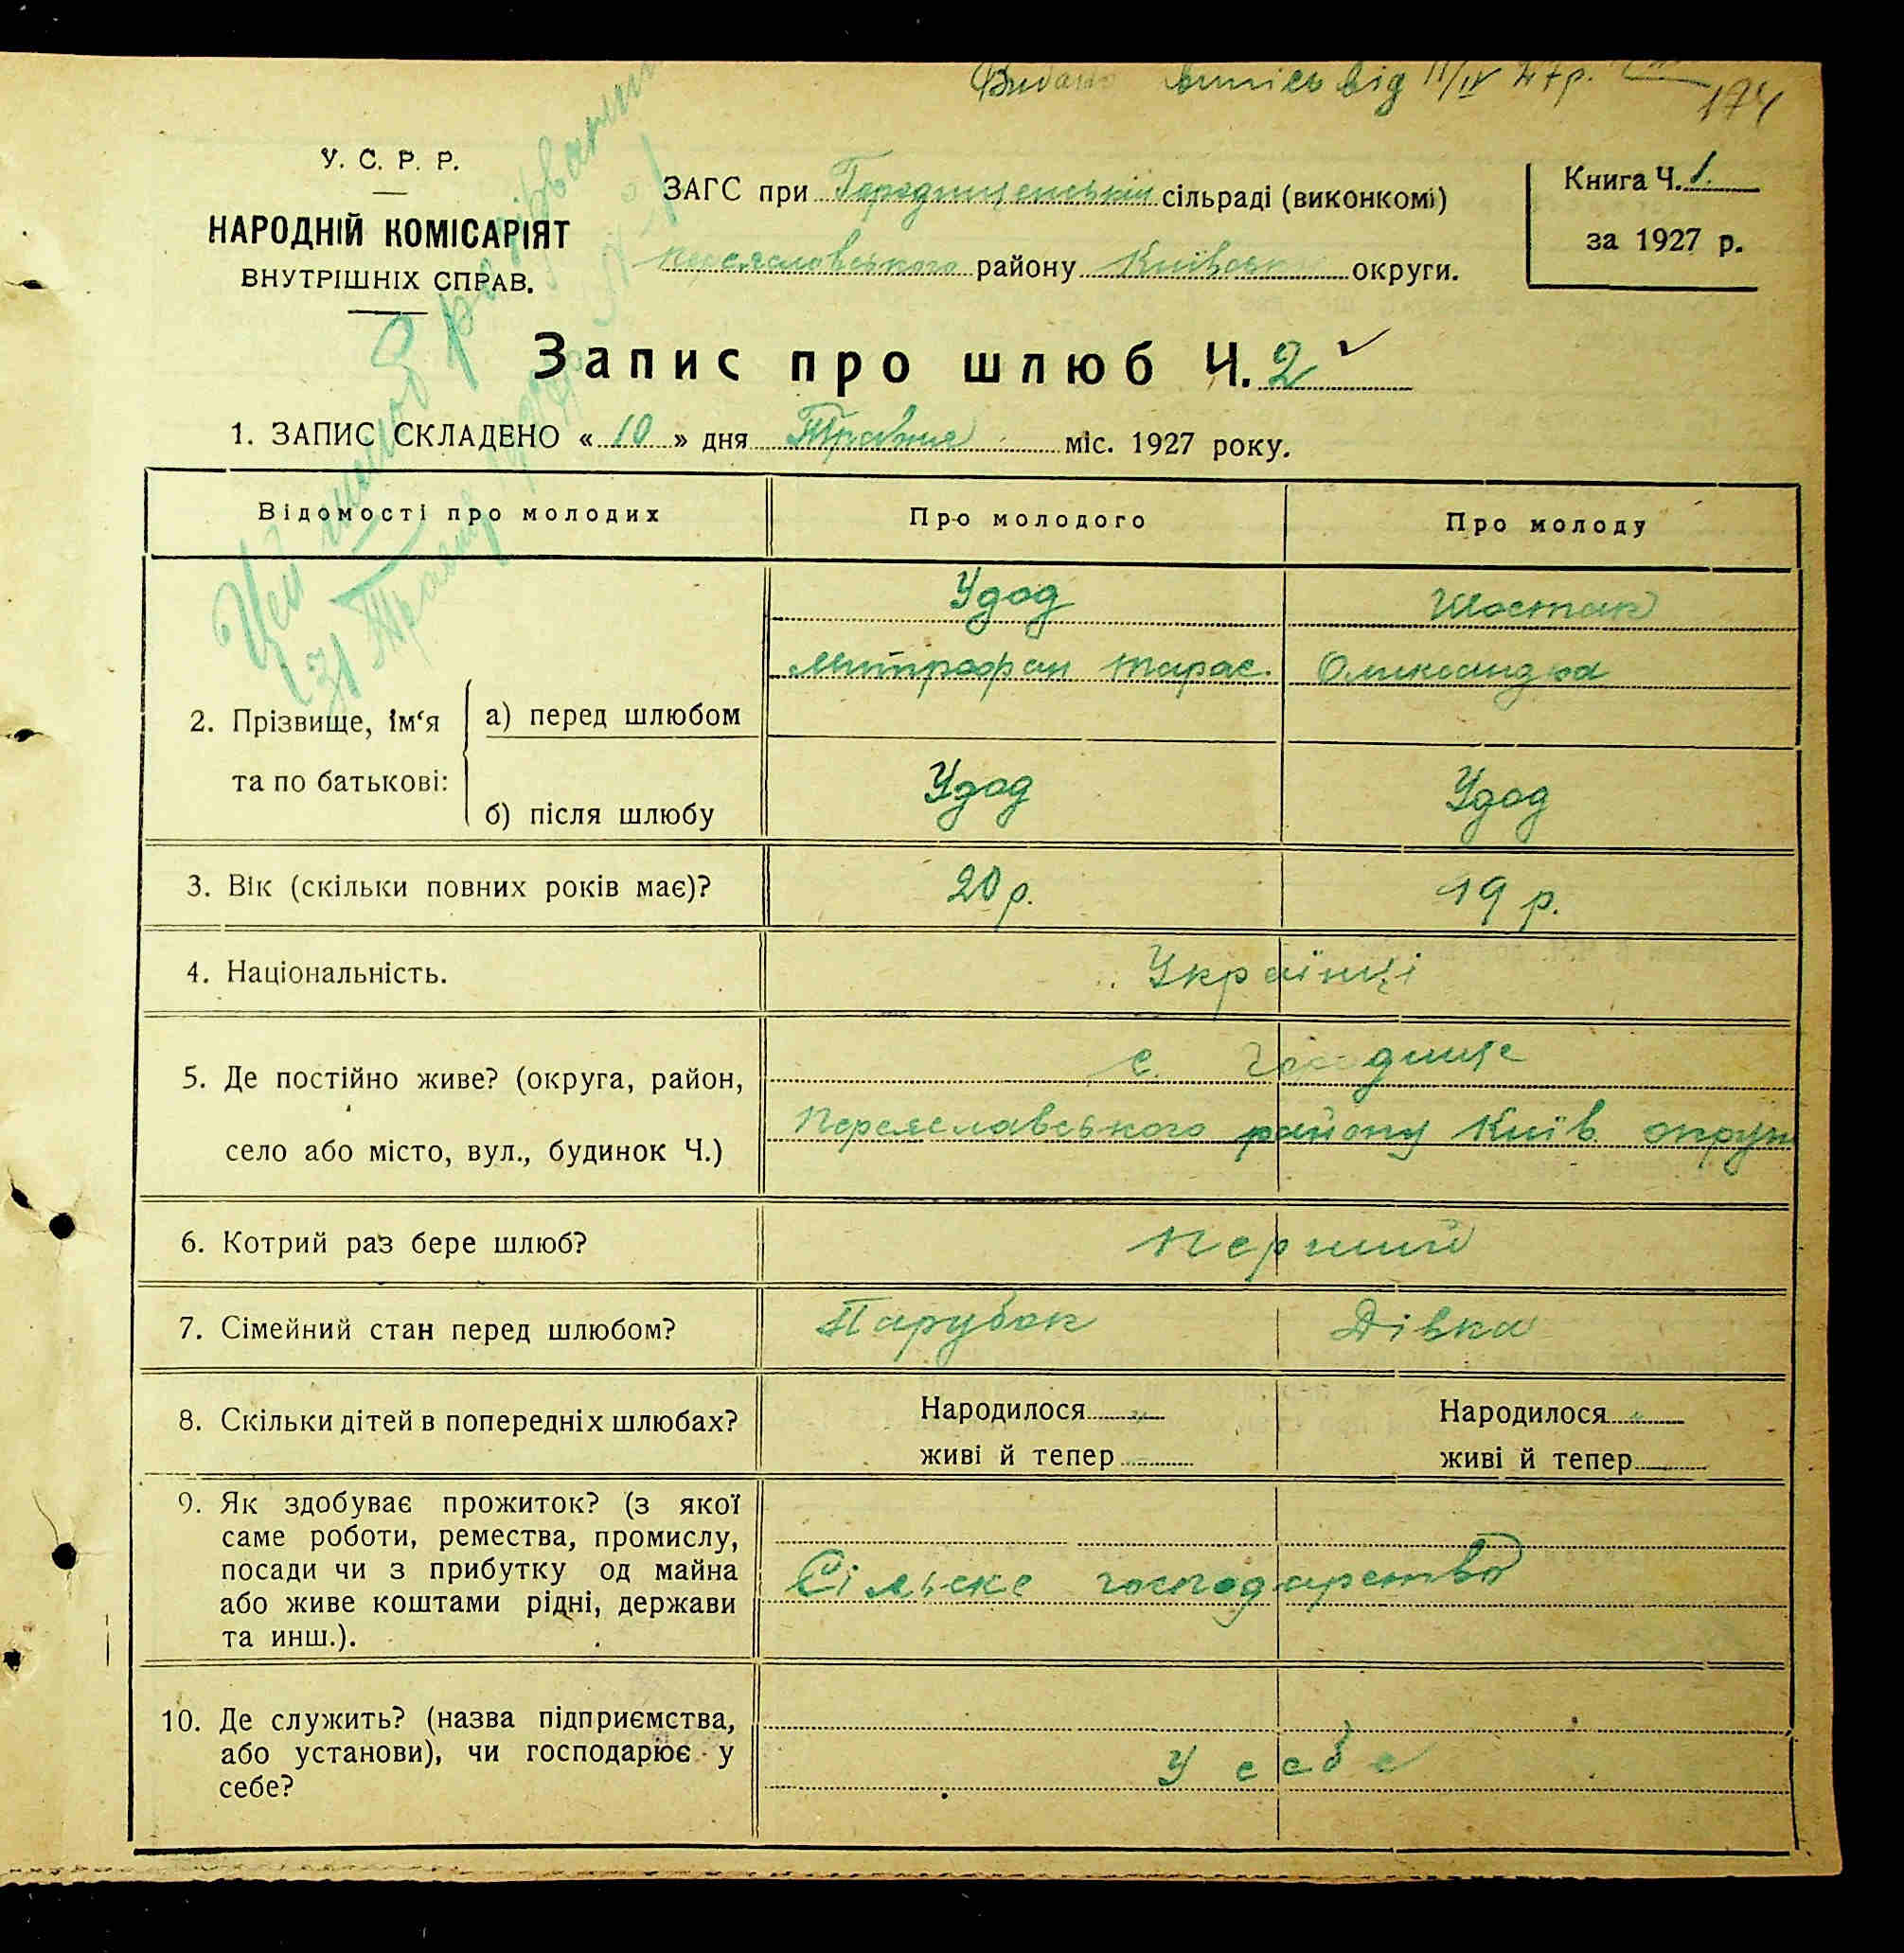 Видано випись від 11/IV 47р.
174
У. С. Р. Р.
НАРОДНІЙ КОМІСАРІЯТ
ВНУТРІШНІХ СПРАВ.
ЗАГС при Городищенській сільраді (виконкомі)
Переяславського району Київської округи.
Книга Ч. 1.
за 1927 р.
Цей шлюб розірваний
31 Травня 1927 р. № 1
Запис про шлюб Ч. 2
1. ЗАПИС СКЛАДЕНО « 10 » дня Травня міс. 1927 року.
Відомості про молодих
Про молодого
Про молоду
2. Прізвище, ім‘я та по батькові:
а) перед шлюбом
Удод
Митрофан Тарас.
Шостак
Олександра
б) після шлюбу
Удод
Удод
3. Вік (скільки повних років має)?
20 р.
19 р.
4. Національність.
Українці
5. Де постійно живе? (округа, район,
село або місто, вул., будинок Ч.)
с. Городище
Переяславського району Київ. округи
6. Котрий раз бере шлюб?
Перший
7. Сімейний стан перед шлюбом?
Парубок
Дівка
8. Скільки дітей в попередніх шлюбах?
Народилося
живі й тепер
Народилося
живі й тепер
9. Як здобуває прожиток? (з якої
саме роботи, ремества, промислу,
посади чи з прибутку од майна
або живе коштами рідні, держави
та инш.).
Сільске господарство
10. Де служить? (назва підприємства,
або установи), чи господарює у
себе?
У себе